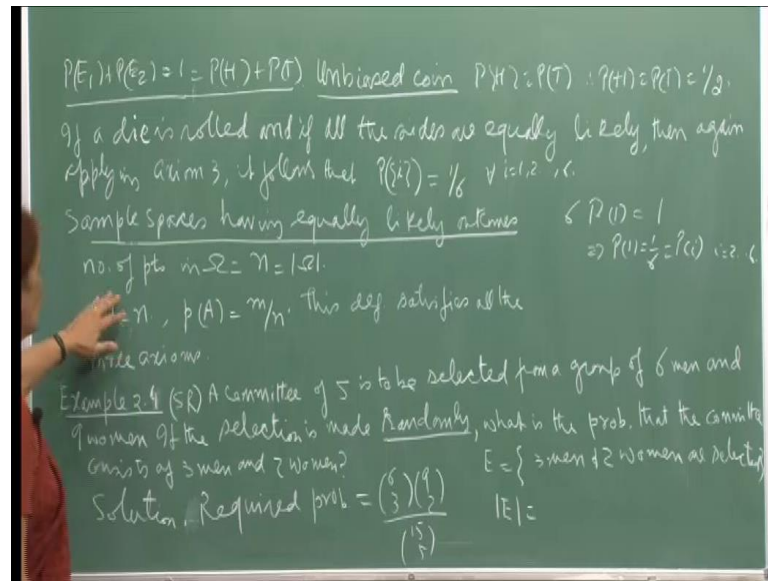 P(E₁)+P(E₂)=1=P(H)+P(T) Unbiased coin P(H)=P(T) ∴P(H)=P(T)=1/2.
If a die is rolled and if all the sides are equally likely, then again
applying axiom 3, it follows that P({i}) = 1/6 ∀ i=1,2 ,6.
Sample spaces having equally likely outcomes 6 P(1) = 1
⇒ P(1)=1/6=P(i) i=2..6
no. of pts in Ω = n = |Ω|.
=n, p(A) = m/n. This def. satisfies all the
three axioms.
Example 2.4 (SR) A Committee of 5 is to be selected from a group of 6 men and
9 women If the selection is made Randomly, what is the prob. that the committe
consists of 3 men and 2 women? E = { 3 men & 2 women are selected}
Solution. Required prob = (6 3)(9 2) / (15 5) |E| =